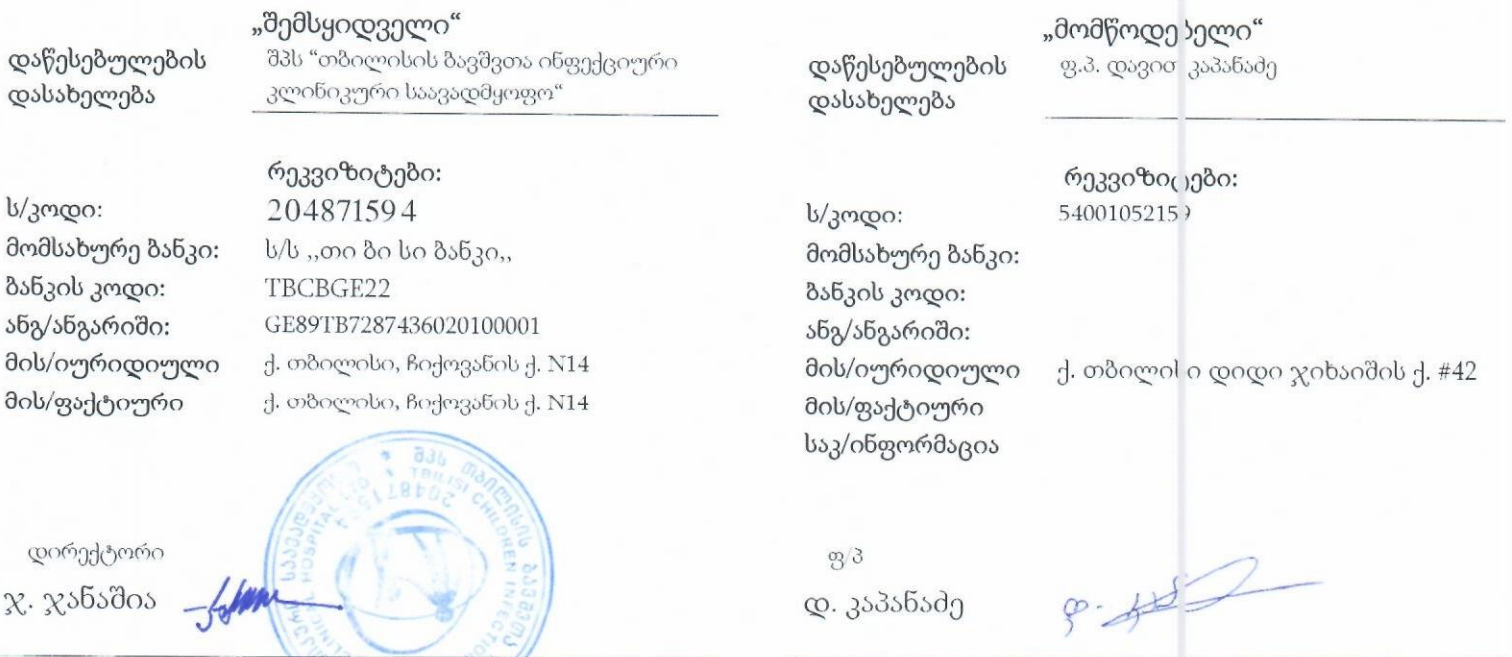 „შემსყიდველი“
დაწესებულების დასახელება
შპს “თბილისის ბავშვთა ინფექციური
კლინიკური საავადმყოფო“
რეკვიზიტები:
ს/კოდი: 204871594
მომსახურე ბანკი: ს/ს ,,თი ბი სი ბანკი,,
ბანკის კოდი: TBCBGE22
ანგ/ანგარიში: GE89TB7287436020100001
მის/იურიდიული ქ. თბილისი, ჩიქოვანის ქ. N14
მის/ფაქტიური ქ. თბილისი, ჩიქოვანის ქ. N14
დირექტორი
ჯ. ჯანაშია
შპს თბილისის ბავშვთა
საავადმყოფო
TBILISI CHILDREN INFECTION
CLINICAL HOSPITAL LTD
204871594
„მომწოდებელი“
დაწესებულების დასახელება
ფ.პ. დავით კაპანაძე
რეკვიზიტები:
ს/კოდი: 54001052159
მომსახურე ბანკი:
ბანკის კოდი:
ანგ/ანგარიში:
მის/იურიდიული ქ. თბილისი დიდი ჯიხაიშის ქ. #42
მის/ფაქტიური
საკ/ინფორმაცია
ფ/პ
დ. კაპანაძე